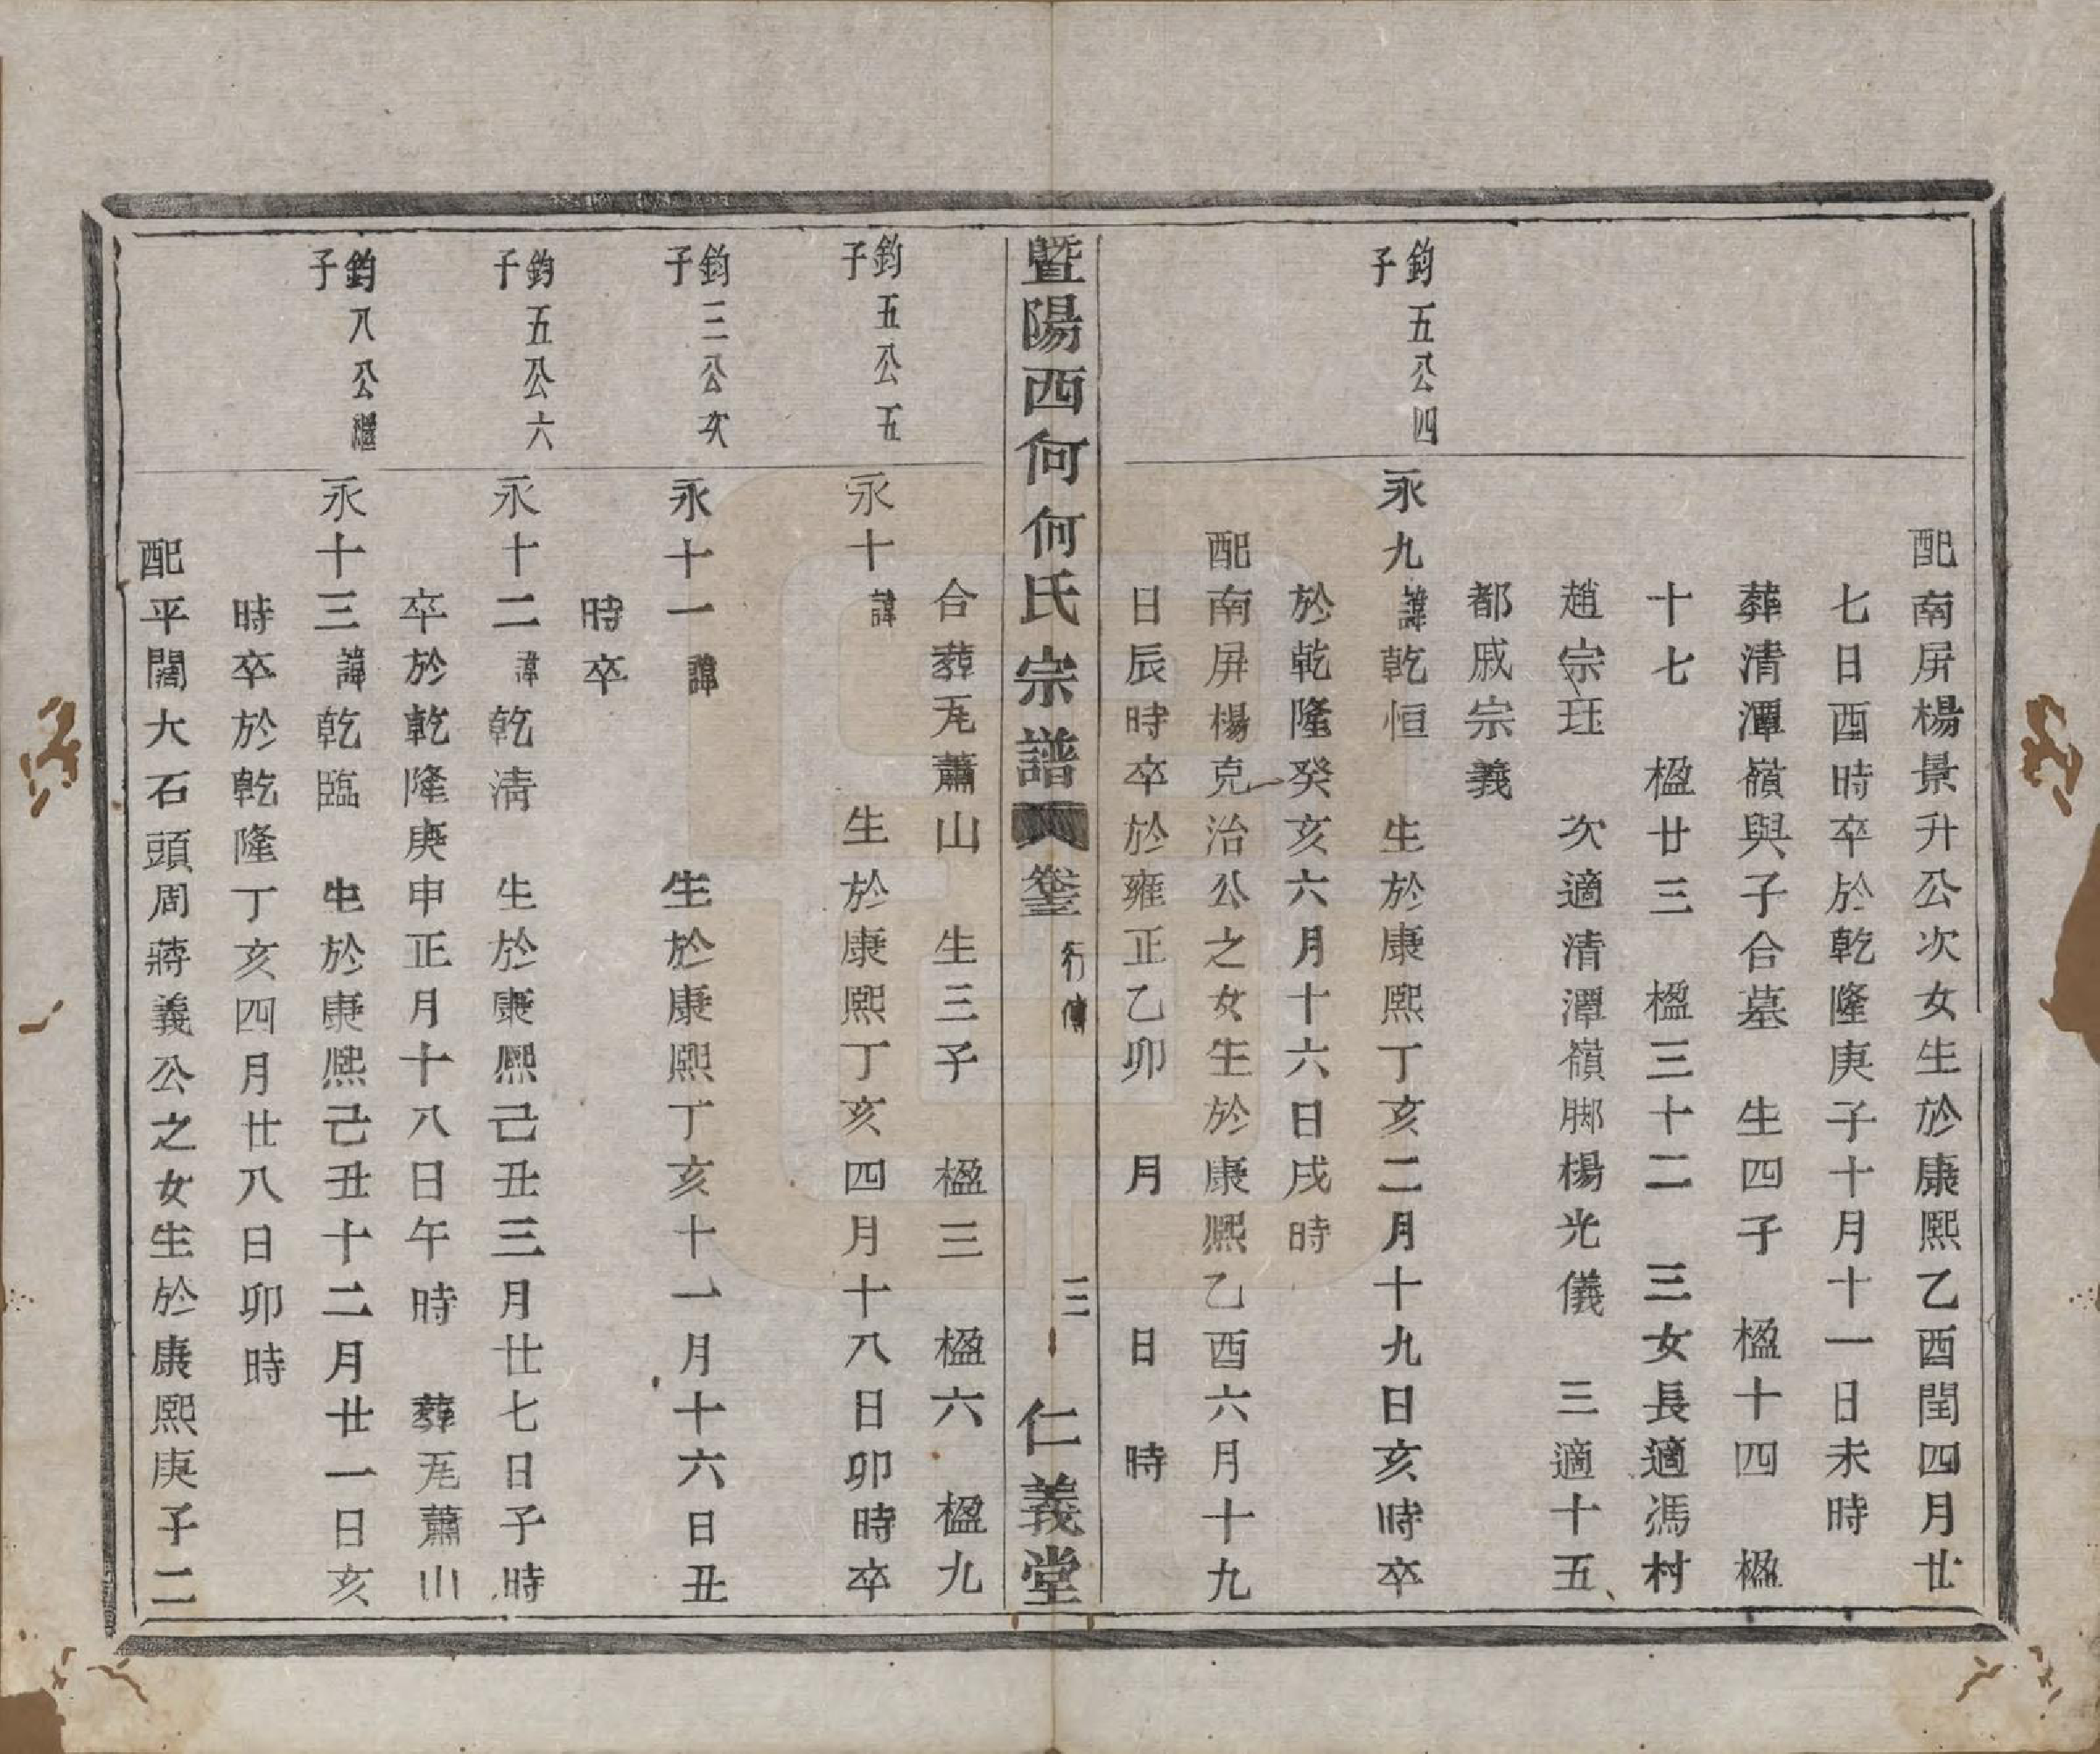 配南屏楊景升公次女生於康熙乙酉閏四月廿
七日酉時卒於乾隆庚子十月十一日未時
葬清潭嶺與子合墓　生四子　楹十四　楹
十七　楹廿三　楹三十二　三女長適馮村
趙宗珏　次適清潭嶺脚楊光儀　三適十五
都戚宗義
鈞五公四子
永九諱乾恒　生於康熙丁亥二月十九日亥時卒
於乾隆癸亥六月十六日戌時
配南屏楊克治公之女生於康熙乙酉六月十九
日辰時卒於雍正乙卯　月　日　時
暨陽西何何氏宗譜　卷　行傳　三　仁義堂
合葬瓦蕭山　生三子　楹三　楹六　楹九
鈞五公五子
永十諱　生於康熙丁亥四月十八日卯時卒
鈞三公次子
永十一諱　生於康熙丁亥十一月十六日丑
時卒
鈞五公六子
永十二諱乾清　生於康熙己丑三月廿七日子時
卒於乾隆庚申正月十八日午時　葬瓦蕭山
鈞八公繼子
永十三諱乾臨　生於康熙己丑十二月廿一日亥
時卒於乾隆丁亥四月廿八日卯時
配平闊大石頭周蔣義公之女生於康熙庚子二